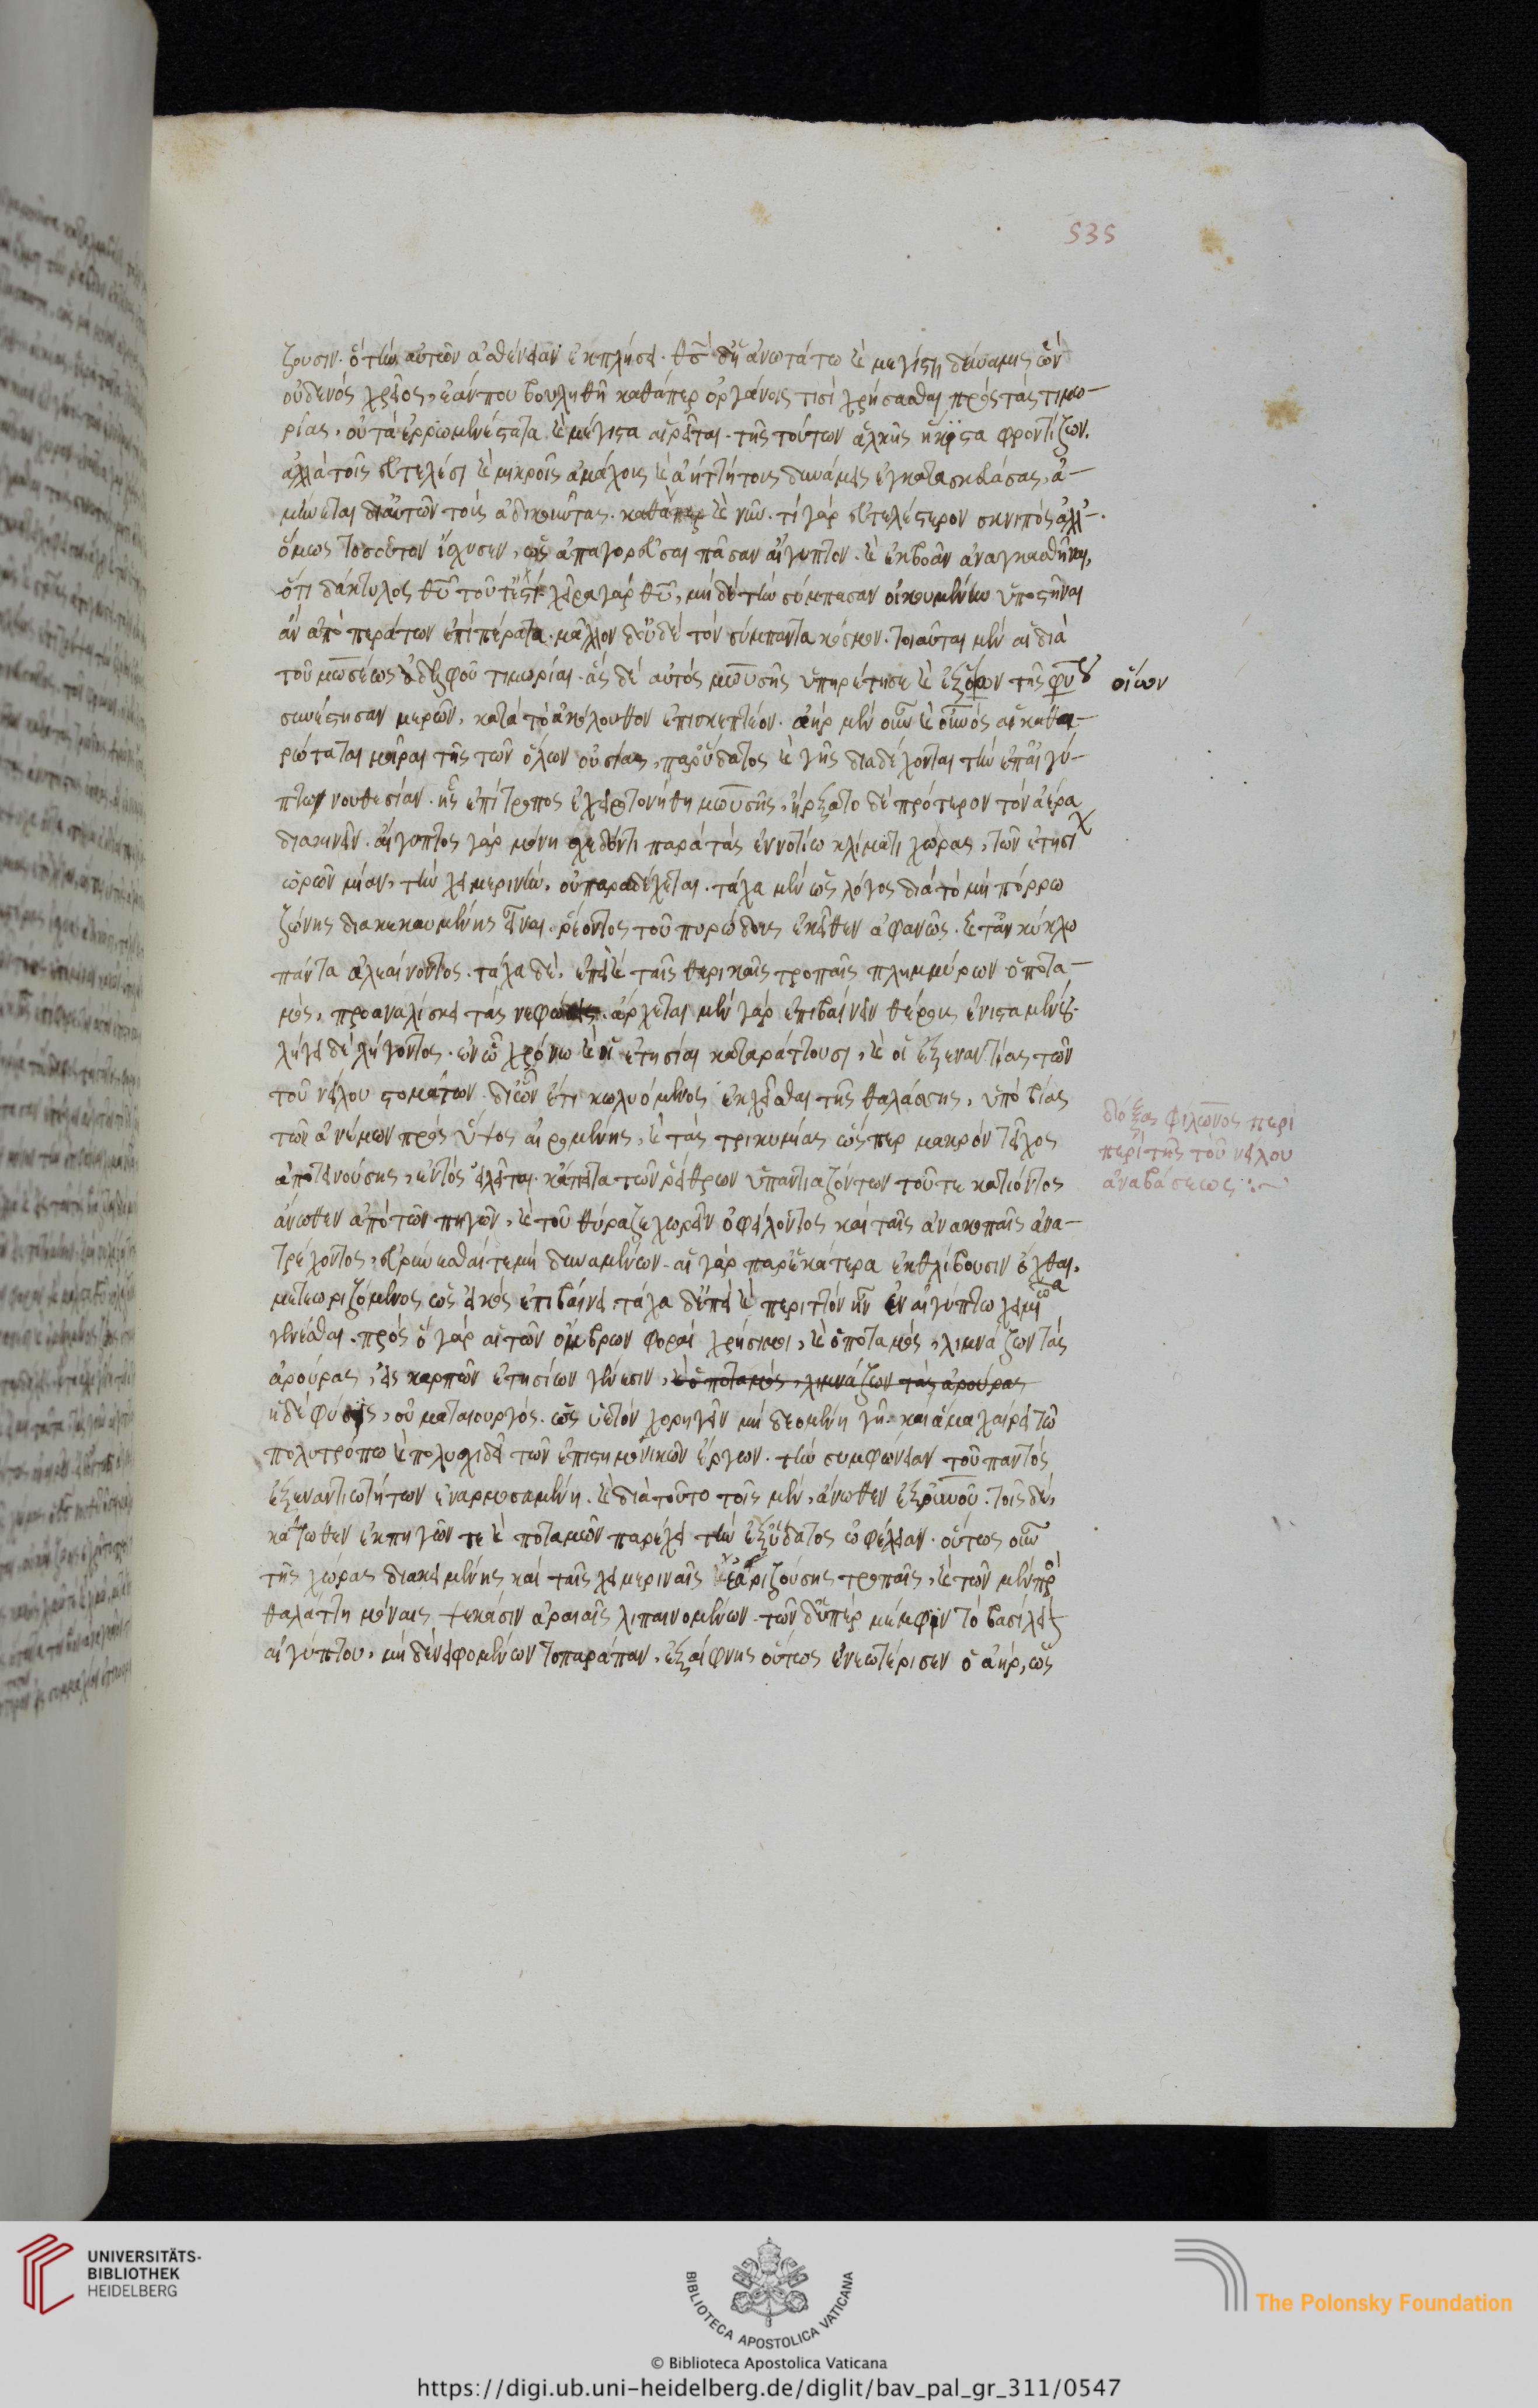 535
ζουσιν. ὁ τὴν αὐτῶν ἀσθένειαν ἐκπλήσει. θεῶ δὲ ἀνωτάτω καὶ μεγίστη δύναμις ὢν
οὐδενὸς χρεῖος, ἐὰν που βουληθῆ καθάπερ ὀργάνοις τισὶ χρήσασθαι πρὸς τὰς τιμω-
ρίας, οὐ τὰ ἐρρωμενέστατα καὶ μέγιστα αἱρεῖται. τῆς τούτων ἀλκῆς ἥκιστα φροντίζων.
ἀλλὰ τοῖς εὐτελέσι καὶ μικροῖς ἀμάχους καὶ ἀηττήτους δυνάμεις ἐγκατασκευάσας, ἀ-
μύνεται δι' αὐτῶν τοὺς ἀδικοῦντας. καθάπερ καὶ νῦν. τί γὰρ εὐτελέστερον σκνιπός; ἀλλ'
ὅμως τοσοῦτον ἴσχυσεν, ὡς ἀπαγορεῦσαι πᾶσαν αἴγυπτον. καὶ ἐκβοᾶν ἀναγκασθῆναι,
ὅτι δάκτυλος θῦ τοῦτ' ἐστί. χεῖρα γὰρ θῦ, μὴ δὲ τὴν σύμπασαν οἰκουμένην ὑποστῆναι
ἂν ἀπὸ περάτων ἐπὶ πέρατα. μᾶλλον δ' οὐδὲ τὸν σύμπαντα κόσμον. τοιαῦται μὲν αἱ διὰ
τοῦ μωσέως ἀδελφοῦ τιμωρίαι. ἃς δὲ αὐτὸς μωυσῆς ὑπηρέτησε καὶ ἐξ οἵων τῆς φύ
οἵων
συνέστησαν μερῶν, κατὰ τὸ ἀκόλουθον ἐπισκεπτέον. ἀὴρ μὲν οὖν καὶ οὐνὸς αἱ καθα-
ρώταται μοῖραι τῆς τῶν ὅλων οὐσίας, παρ' ὕδατος καὶ γῆς διαδέχονται τὴν ἐπ' αἰγύ-
πτω νουθεσίαν. ἧς ἐπίτροπος ἐχειροτονήθη μωυσῆς, ἤρξατο δὲ πρότερον τὸν ἀέρα
διακινεῖν. αἴγυπτος γὰρ μόνη σχεδόν τι παρὰ τὰς ἐν νοτίω κλίματι χώρας, τῶν ἐτησί
ὡρῶν μίαν, τὴν χειμερινὴν, οὐ παραδέχεται. τάχα μὲν ὡς λόγος διὰ τὸ μὴ πόρρω
ζώνης διακεκαυμένης εἶναι. ῥέοντος τοῦ πυρώδους ἐκεῖθεν ἀφανῶς. καὶ τἂν κύκλω
πάντα ἀλεαίνοντος. τάχα δὲ, ἐπεὶ καὶ ταῖς θερικαῖς τροπαῖς πλημμύρων ὁ ποτα-
μὸς, προαναλίσκει τὰς νεφώσεις. ἄρχεται μὲν γὰρ ἐπιβαίνειν θέρους ἐνισταμένου.
λήγει δὲ λήγοντος. ἐν ὧ χρόνω καὶ οἱ ἐτησίαι καταράττουσι, καὶ οἱ ἐξεναντίας τῶν
τοῦ νείλου στομάτων. δι' ὧν ἔτι κωλυόμενος ἐκχεῖσθαι τῆς θαλάσσης, ὑπὸ βίας
τῶν ἀνέμων πρὸς ὕψος αἰρομένης, καὶ τὰς τρικυμίας ὥσπερ μακρὸν τεῖχος
ἀποτεινούσης, ἐντὸς εἱλεῖται. κἄπειτα τῶν ῥείθρων ὑπαντιαζόντων τοῦ τε κατιόντος
ἄνωθεν ἀπὸ τῶν πηγῶν, καὶ τοῦ θύραζε χωρεῖν ὀφείλοντος καὶ ταῖς ἀνακοπαῖς ἀνα-
τρέχοντος, εὐρύνεσθαί τε μὴ δυναμένων. αἱ γὰρ παρ' ἑκάτερα ἐκθλίβουσιν ὄχθαι,
μετεωριζόμενος ὡς εἰκὸς ἐπιβαίνει. τάχα δ' ἐπεὶ καὶ περιττὸν ἦν ἐν αἰγύπτω χειμῶνα
γενέσθαι. πρὸς ὃ γὰρ αἱ τῶν ὄμβρων φοραὶ χρήσιμοι, καὶ ὁ ποταμὸς, λιμνάζων τὰς
ἀρούρας, εἰς καρπῶν ἐτησίων γένεσιν, καὶ ὁ ποταμὸς, λιμνάζων τὰς ἀρούρας
ἡ δὲ φύσις, οὐ ματαιουργὸς. ὡς ὑετὸν χορηγεῖν μὴ δεομένη γῆ. καὶ ἅμα χαίρει τῶ
πολυτρόπω καὶ πολυσχιδεῖ τῶν ἐπιστημονικῶν ἔργων. τὴν συμφωνίαν τοῦ παντὸς
ἐξ ἐναντιοτήτων ἐναρμοσαμένη. καὶ διὰ τοῦτο τοῖς μὲν, ἄνωθεν ἐξ οὐνοῦ. τοῖς δὲ,
κάτωθεν ἐκ πηγῶν τε καὶ ποταμῶν παρέχει τὴν ἐξ ὕδατος ὠφέλειαν. οὕτως οὖν
τῆς χώρας διακειμένης καὶ ταῖς χειμεριναῖς ἐαριζούσης τροπαῖς, καὶ τῶν μὲν πρὸ
θαλάττη μόναις ψεκάσιν ἀραιαῖς λιπαινομένων. τῶν δ' ὑπὲρ μέμφιν τὸ βασίλει
αἰγύπτου, μὴ δὲ νειφομένων τοπαράπαν, ἐξαίφνης οὕτως ἐνεωτέρισεν ὁ ἀὴρ, ὡς
δόξα φίλωνος περὶ
περὶ τῆς τοῦ νείλου
ἀναβάσεως :~
UNIVERSITÄTS-
BIBLIOTHEK
HEIDELBERG
BIBLIOTECA APOSTOLICA VATICANA
The Polonsky Foundation
© Biblioteca Apostolica Vaticana
https://digi.ub.uni-heidelberg.de/diglit/bav_pal_gr_311/0547